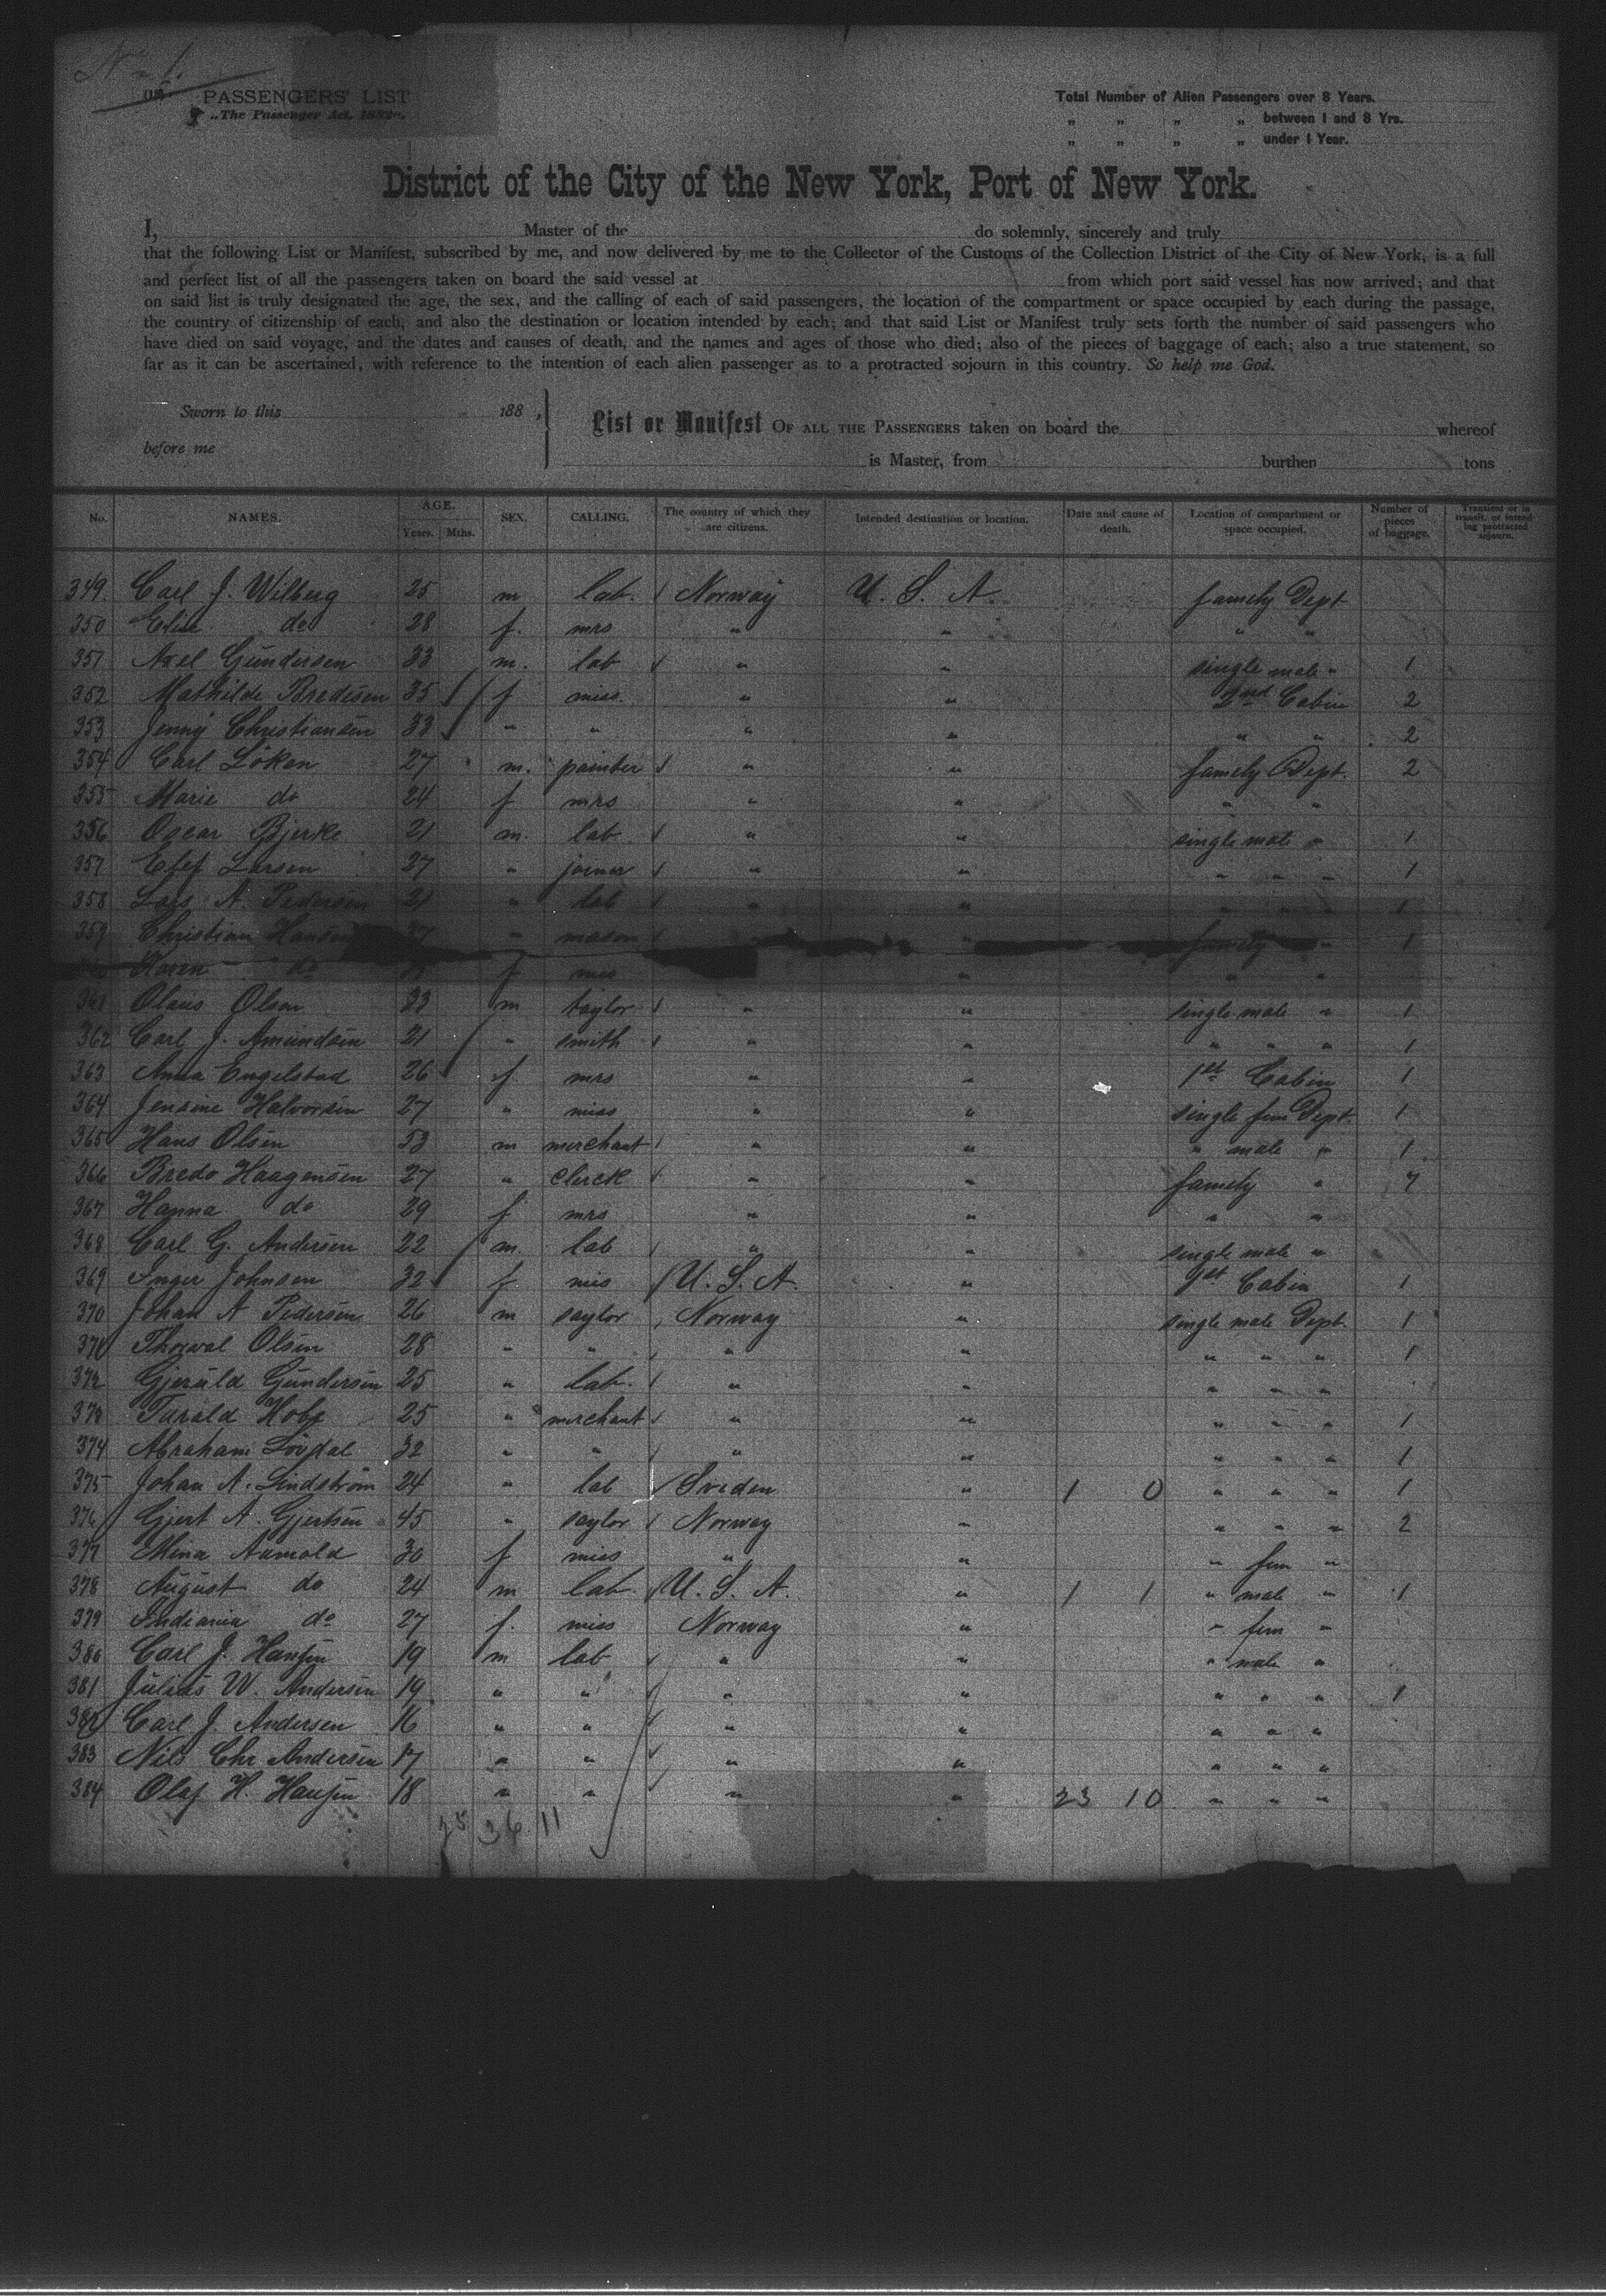 No 1.
PASSENGERS' LIST
„The Passenger Act, 1882".
Total Number of Alien Passengers over 8 Years.
„ „ „ „ between 1 and 8 Yrs.
„ „ „ „ under 1 Year.
District of the City of the New York, Port of New York.
I, Master of the do solemnly, sincerely and truly
that the following List or Manifest, subscribed by me, and now delivered by me to the Collector of the Customs of the Collection District of the City of New York, is a full
and perfect list of all the passengers taken on board the said vessel at from which port said vessel has now arrived; and that
on said list is truly designated the age, the sex, and the calling of each of said passengers, the location of the compartment or space occupied by each during the passage,
the country of citizenship of each, and also the destination or location intended by each; and that said List or Manifest truly sets forth the number of said passengers who
have died on said voyage, and the dates and causes of death, and the names and ages of those who died; also of the pieces of baggage of each; also a true statement, so
far as it can be ascertained, with reference to the intention of each alien passenger as to a protracted sojourn in this country. So help me God.
Sworn to this 188 ,
before me
List or Manifest OF ALL THE PASSENGERS taken on board the whereof
is Master, from burthen tons
No. NAMES. AGE. Years. Mths. SEX. CALLING. The country of which they are citizens. Intended destination or location. Date and cause of death. Location of compartment or space occupied. Number of pieces of baggage. Transient or in transit, or intending protracted sojourn.
349. Carl J. Wilberg 25 m lab. Norway U. S. A. family Dept
350 Elise do 28 f. mrs " " " "
351 Axel Gundersen 33 m. lab " " single male " 1
352 Mathilde Bredesen 35 f miss. " " 2nd Cabin 2
353 Jenny Christiansen 33 " " " " " " 2
354 Carl Löken 27 m. painter " " family Dept. 2
355 Marie do 24 f mrs " " " "
356 Oscar Bjerke 21 m. lab " " single male " 1
357 Larsen 27 " joiner " " " " " 1
358 Lars A. Pedersen 21 " lab " " " " " 1
359 Christian Hansen " mason " " family " 1
Karen do f mrs " " "
361 Olaus Olsen 33 m taylor " " single male " 1
362 Carl J. Amundsen 21 " smith " " " " " 1
363 Anna Engelstad 26 f. mrs " " 1st Cabin 1
364 Jensine Halvorsen 27 " miss " " single fem Dept. 1
365 Hans Olsen 53 m merchant " " " male " 1
366 Bredo Haagensen 27 " clerck " " family " 7
367 Hanna do 29 f. mrs " " " "
368 Carl G. Andersen 22 m. lab " " single male "
369 Inger Johnsen 32 f. mis U. S. A. " 1st Cabin 1
370 Johan A Pedersen 26 m saylor Norway " single male Dept. 1
371 Thorval Olsen 28 " " " " " " " 1
372 Gjeruld Gundersen 25 " lab. " " " " "
373 Tarald 25 " merchant " " " " " 1
374 Abraham Lövdal 32 " " " " " " " 1
375 Johan A. Lindström 24 " lab Sveden " 1 0 " " " 1
376 Gjert A. Gjertsen 45 " saylor Norway " " " " 2
377 Mina 30 f miss " " " fem "
378 August do 24 m lab. U. S. A. " 1 1 " male " 1
379 Indiania do 27 f. miss Norway " " fem "
380 Carl J. Hansen 19 m lab " " " male "
381 Julius W. Andersen 19 " " " " " " " 1
382 Carl J. Andersen 16 " " " " " " "
383 Nils Chr Andersen 17 " " " " " " "
384 Olaf H. Hansen 18 " " " " 23 10 " " "
36 11